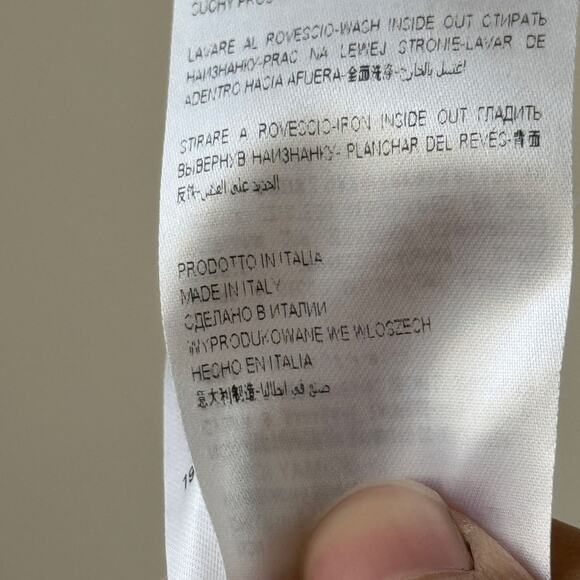 SUCHY PROS
LAVARE AL ROVESCIO-WASH INSIDE OUT СТИРАТЬ
НАИЗНАНКУ-PRAC NA LEWEJ STRONIE-LAVAR DE
ADENTRO HACIA AFUERA-全面洗净-اغسل بالخارج
STIRARE A ROVESCIO-IRON INSIDE OUT ГЛАДИТЬ
ВЫВЕРНУВ НАИЗНАНКУ- PLANCHAR DEL REVÉS-背面
反洗-الحديد على العكس
PRODOTTO IN ITALIA
MADE IN ITALY
СДЕЛАНО В ИТАЛИИ
WYPRODUKOWANE WE WLOSZECH
HECHO EN ITALIA
意大利制造-صنع في ايطاليا
19